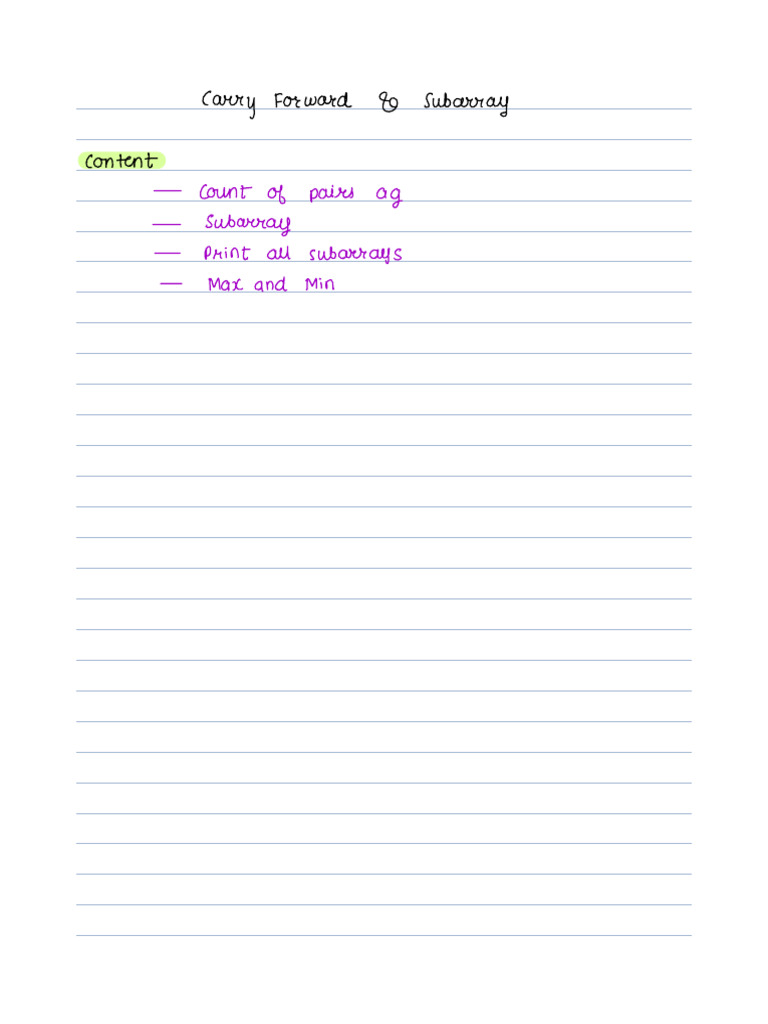 Carry Forward & Subarray
Content
— Count of pairs ag
— Subarray
— Print all subarrays
— Max and Min